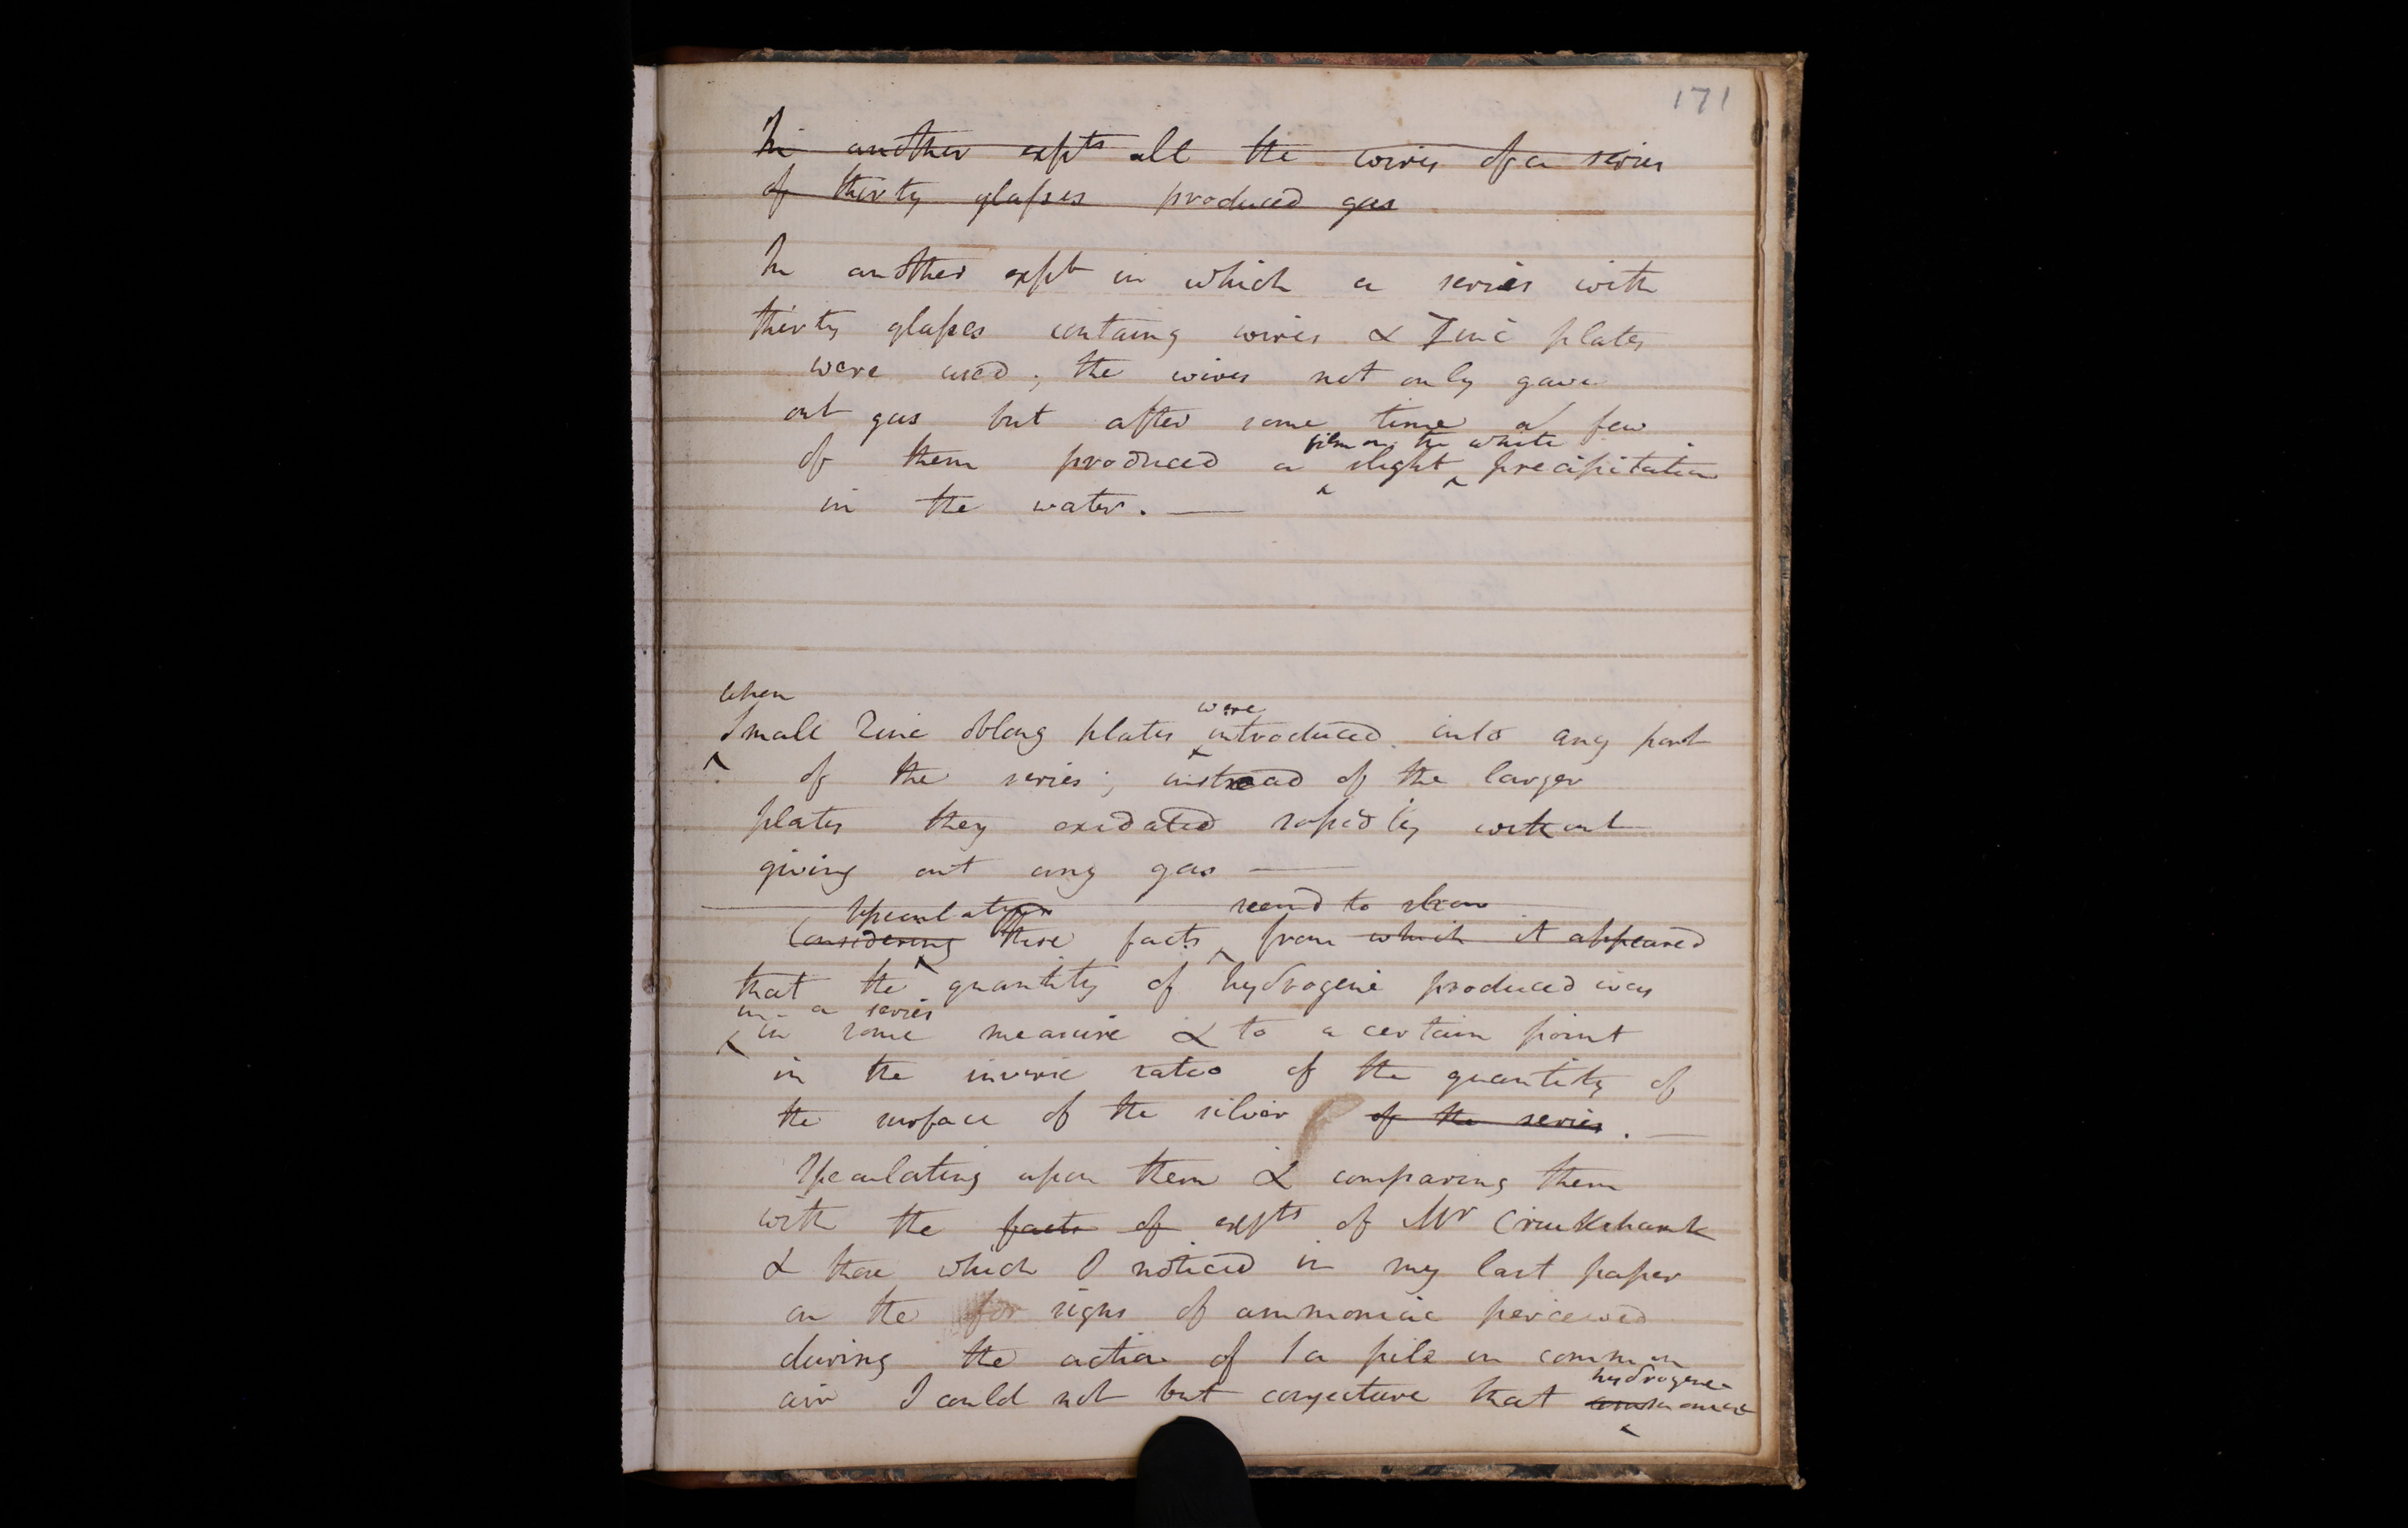 171
In another expts all the wires of a series
of thirty glasses produced gas
In another expt in which a series with
thirty glasses containg wires & Zinc plates
were used; the wires not only gave
out gas but after some time a few
film on the white
of them produced a slight precipitation
in the water. —
when
were
Small Zinc oblong plates introduced into any part
of the series; instead of the larger
plates they oxidated rapidly without
giving out any gas —
Speculating seemd to shew
Considering these facts from which it appeared
that the quantity of hydrogene produced was
in a series
in some measure & to a certain point
in the inverse ratio of the quantity of
the surface of the silver of the series. —
Speculating upon them & comparing them
with the facts of expts of Mr Cruikshank
& those which I noticed in my last paper
on the for signs of ammoniac perceived
during the action of a pile in common
hydrogene
air I could not but conjecture that ammoniac